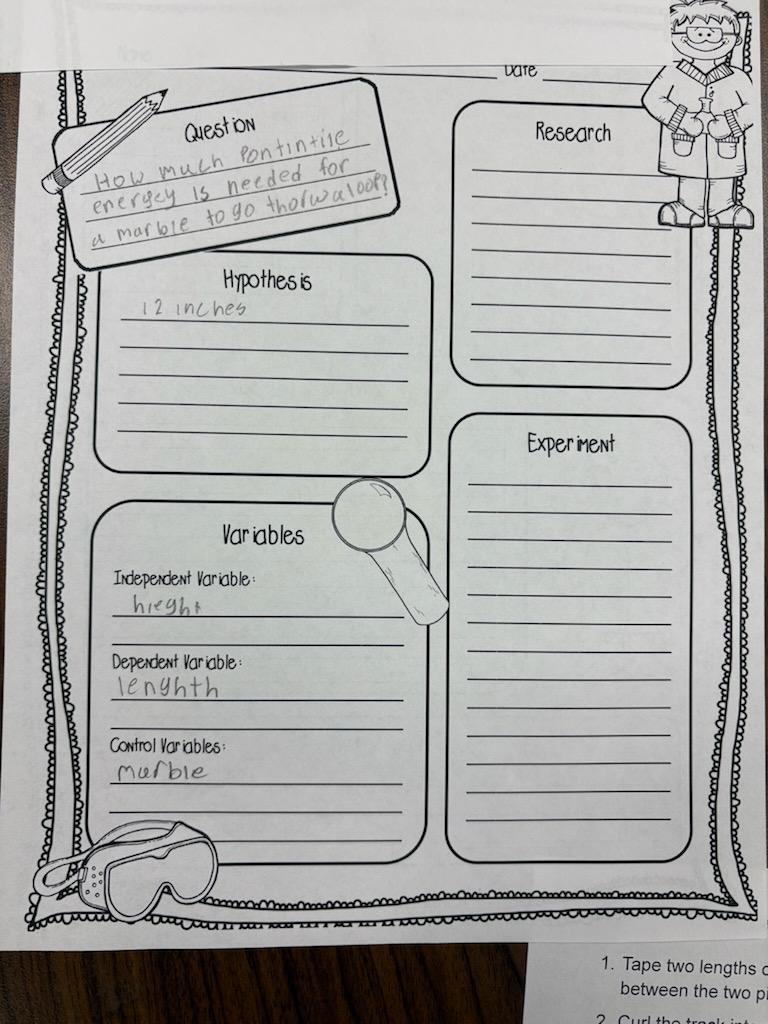 Date
Question
How much Pontintile
energey is needed for
a marble to go thorw a loop?
Research
Hypothesis
12 inches
Experiment
Variables
Independent Variable:
hieght
Dependent Variable:
lenghth
Control Variables:
marble
1. Tape two lengths
between the two
2. Curl the track